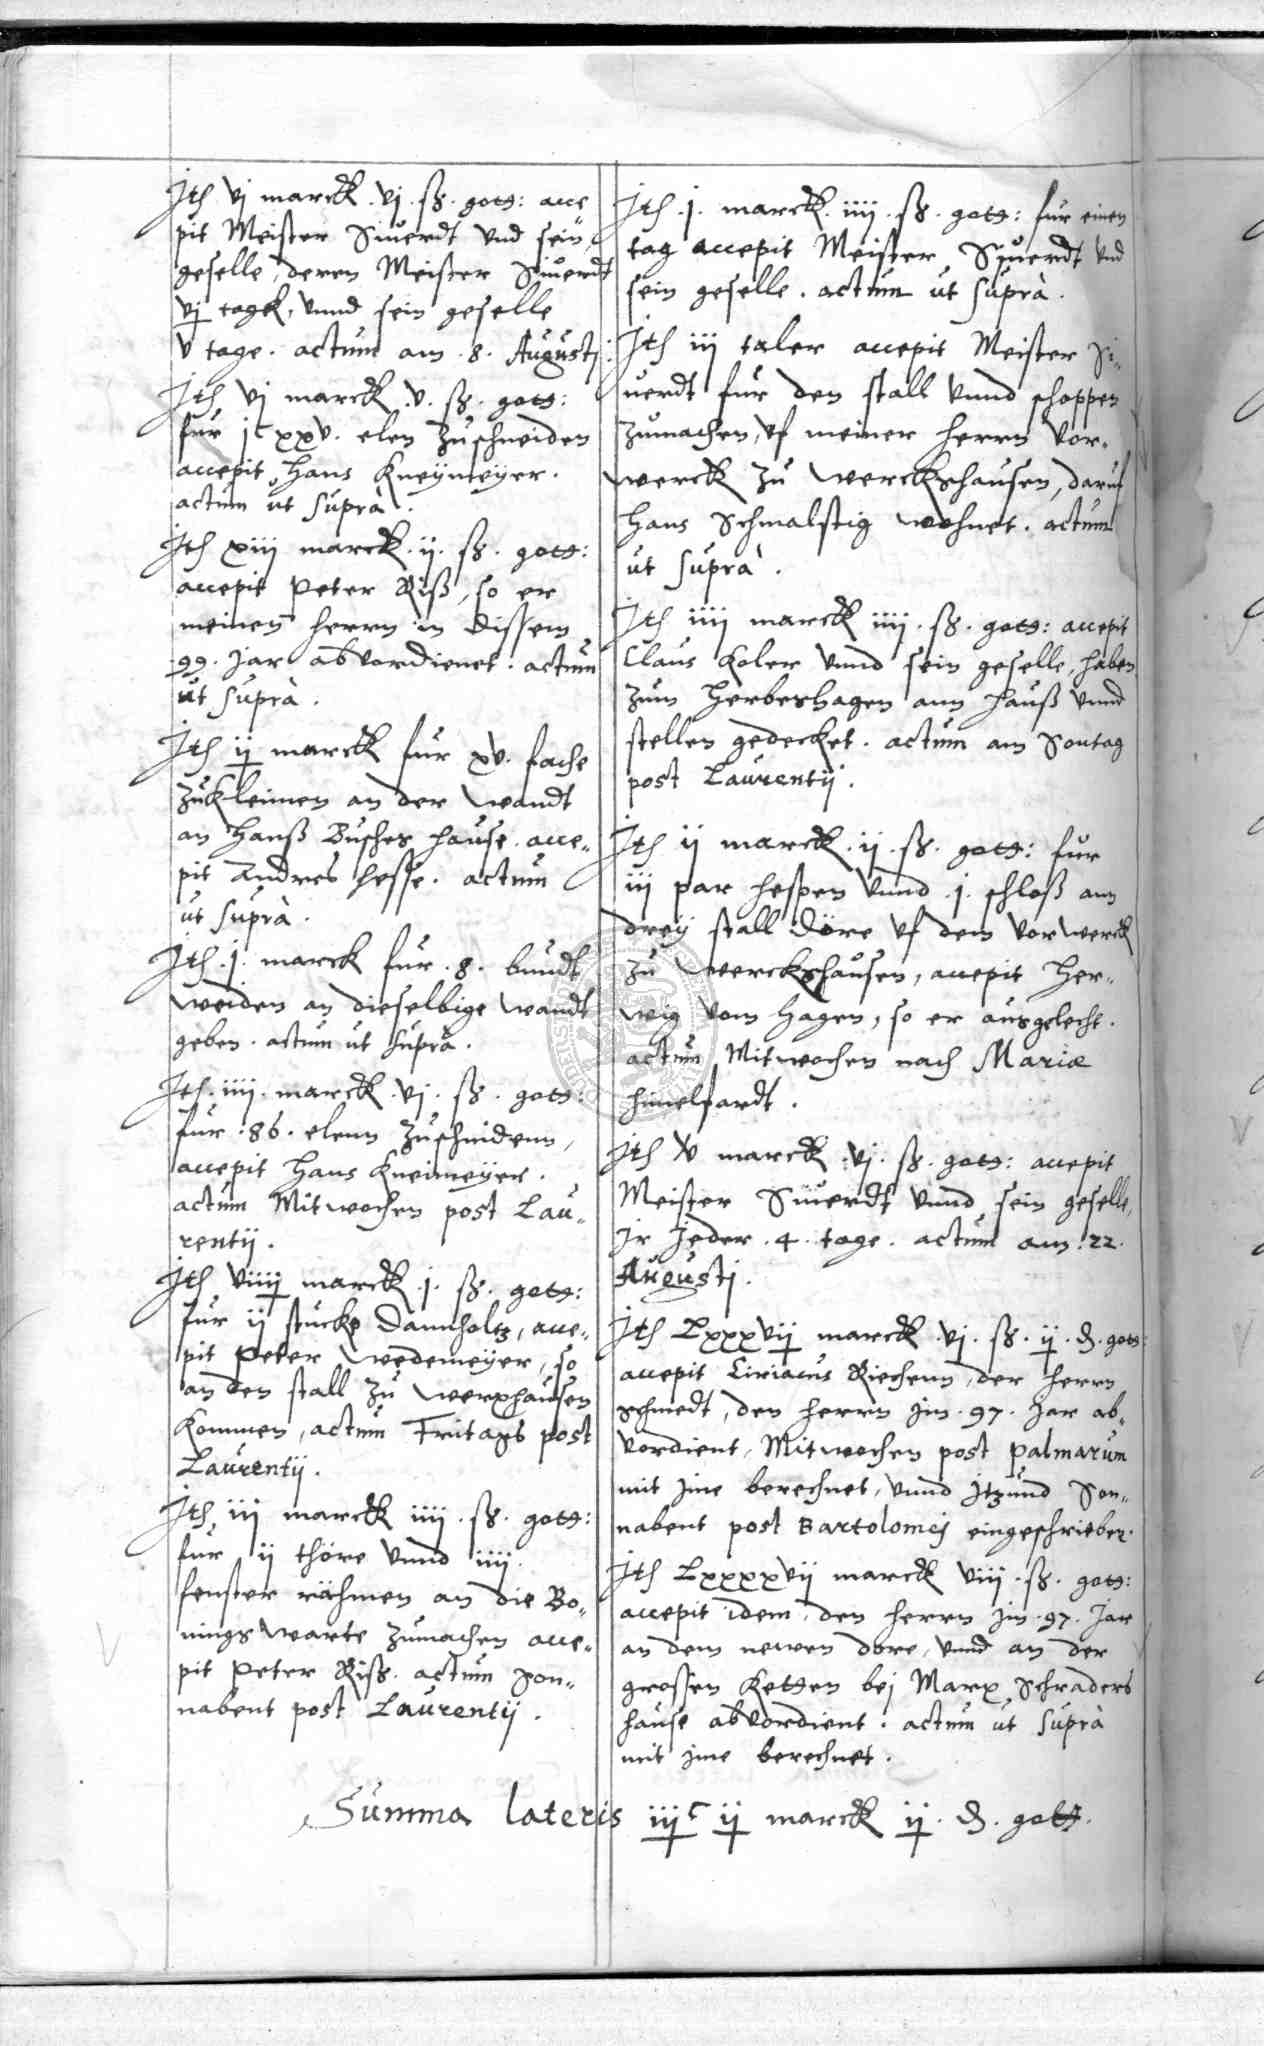 Ith vj marck . vj . ß . gott: acce
pit Meister Siuerdt vnd sein
geselle, deren Meister Siuerdt
vj tagk, vnnd sein geselle
v tage . actum am . 8 . Augustj
Ith vj marck . v . ß . gott:
fur jc xxv . elen zuschneiden
accepit Hans Kneymeyer .
actum ut suprà .
Ith xiij marck . ij . ß . gott:
accepit Peter Riß, so er
meinen herrn in dissem
99 . Jar abvordienet . actum
ut suprà .
Ith ij marck fur xv . fache
zukleimen an der wandt
an Hanß Busches hause . acce„
pit Andres Hesse . actum
ut suprà .
Ith . j . marck fur . 8 . bundt
weiden an dieselbige wandt
geben . actum ut suprà .
Ith . iiij . marck . vj . ß . gott:
fur . 86 . elenn zuschnidenn,
accepit Hans Kneimeyer .
actum Mitwochen post Lau„
rentij .
Ith viiij marck . j . ß . gott:
fur ij stucke Dannholtz, acce„
pit Peter Wedemeyer, so
an den stall zu Werxhausen
kommen, actum Fritags post
Laurentij .
Ith iij marck iiij . ß . gott:
fur ij thöre vnnd iiij
fenster rähmen an die Bo„
nings warte zumachen acce„
pit Peter Riß . actum Son„
nabent post Laurentij .
Ith . j . marck . iiij . ß . gott: fur einen
tag accepit Meister Siuerdt vnd
sein geselle . actum ut suprà .
Ith iij taler accepit Meister Si„
uerdt fur den stall vnnd schoppen
zumachen, vf meiner herrn vor„
werck zu Werckshausen, daruf
Hans Schmalstig wohnet . actum
ut suprà .
Ith iiij marck iiij . ß . gott: accepit
Claus Koler vnnd sein geselle, haben
zum Herbershagen ann hauß vnnd
stellen gedecket . actum am Sontag
post Laurentij .
Ith ij marck . ij . ß . gott: fur
iij par hespen vnnd . j . schloß ann
drey stall döre vf dem vorwerck
zu Werckshausen, accepit Her„
wig vom Hagen, so er ausgelecht .
actum Mitwochen nach Mariæ
himelfardt .
Ith v marck . vj . ß . gott: accepit
Meister Siuerdt vnnd sein geselle,
Jr Jeder . 4 . tage . actum am . 22 .
Augustj .
Ith Lxxxvij marck . vj . ß . ij . d . gott:
accepit Ciriacus Riechenn, der herrn
schmedt, den herrn jm . 97 . Jar ab„
vordient, Mitwochen post palmarum
mit jme berechnet, vnnd Jtzund Son„
nabent post Bartolomej eingeschrieben .
Ith Lxxxxvij marck viij . ß . gott:
accepit idem, den herrn jm . 97 . Jar
an dem newen dore, vnnd an der
grossen ketten bej Marx Schraders
hause abvordient . actum ut suprà
mit jme berechnet .
Summa lateris iijc ij marck ij . d . gott .